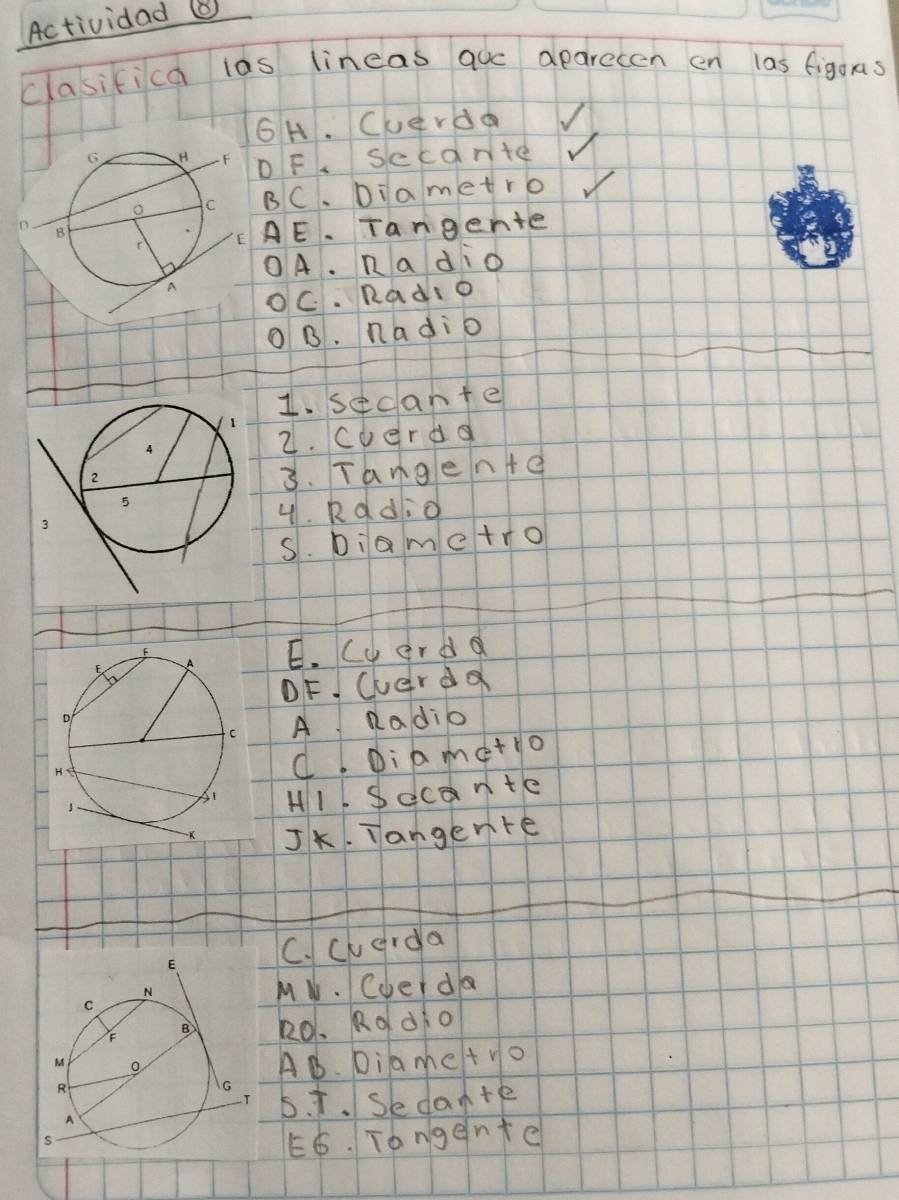 Actividad 8
clasifica las lineas que aparecen en las figuras
G H F D B O C r E A
GH. Cuerda ✓
DF. Secante ✓
BC. Diametro ✓
AE. Tangente
OA. Radio
OC. Radio
OB. Radio
1 4 2 5 3
1. secante
2. cuerda
3. Tangente
4. Radio
5. Diametro
F E A D C H I J K
E. Cuerda
DF. Cuerda
A. Radio
C. Diametro
HI. Secante
JK. Tangente
E C N F B M O R G A T S
C. Cuerda
MN. Cuerda
RO. Radio
AB. Diametro
S.T. Secante
EG. Tangente